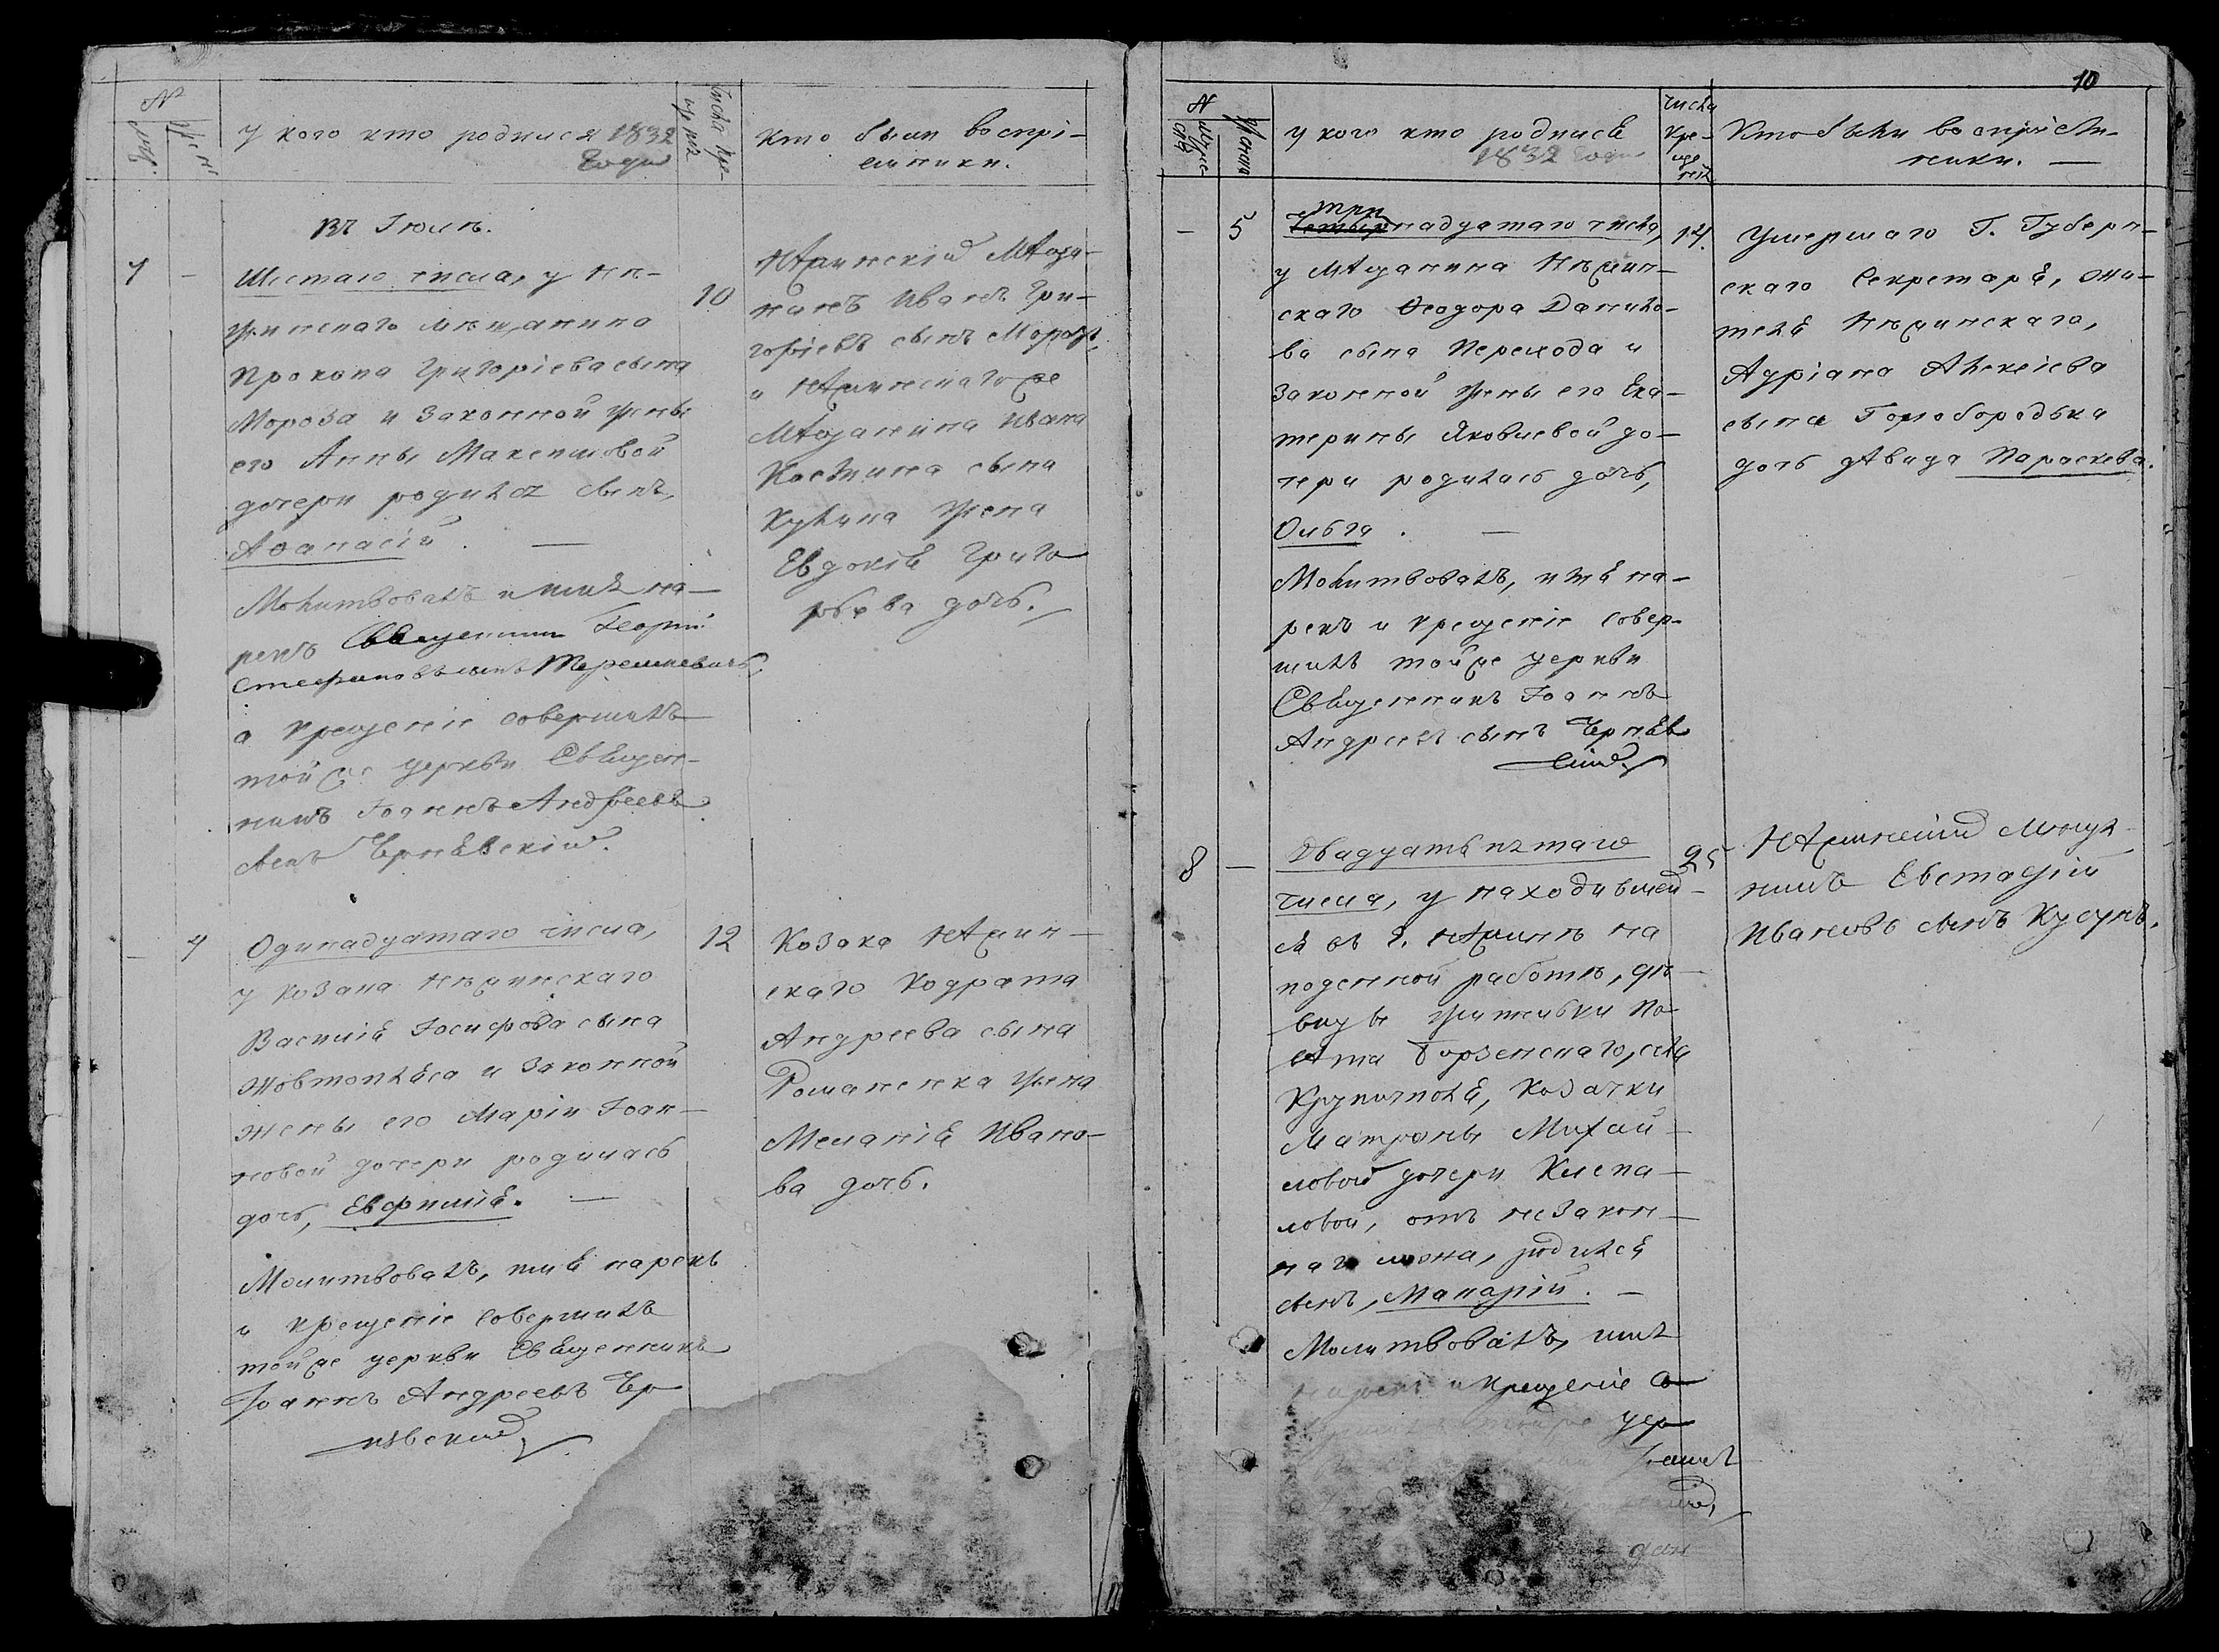 №
Муж.
Жен.
У кого кто родился 1832
Года
Числа кре-
щенія
Кто были воспрі-
емники.
Въ Іюлѣ.
7
-
Шестаго числа, у нѣ-
жинскаго мѣщанина
Прокопа Григоріева сына
Мороза и законной жены
его Анны Максимовой
дочери родился сынъ,
Аѳанасій. —
Молитвовалъ и имя на-
рекъ Священникъ Георгій
Стефановъ сынъ
а крещеніе совершилъ
той же церкви Священ-
никъ Іоаннъ Андреевъ
сынъ Чернявскій.
10
Нѣжинскій мѣща-
нинъ Иванъ Гри-
горіевъ сынъ Морозъ,
и нѣжинскаго же
мѣщанина Ивана
сына
жена
Евдокія Григо-
рьева дочь.
-
4
Одинадцатаго числа,
у козака нѣжинскаго
Василія Іосифова сына
Жовтопляса и законной
жены его Маріи Іоан-
новой дочери родилась
дочь, Евфимія. —
Молитвовалъ, имя нарекъ
и крещеніе совершилъ
той же церкви Священникъ
Іоаннъ Андреевъ Чер-
нявскій.
12
Козака нѣжин-
скаго Кодрата
Андреева сына
Романенка жена
Меланія Ивано-
ва дочь.
10
№
Мужс-
Женска
У кого кто родился
1832 Года
Числа
Кре-
ще
нія
Кто были воспріем-
ники. —
-
5
три
Четырнадцатаго числа,
у мѣщанина Нѣжин-
скаго Ѳеодора Данило-
ва сына Перехода и
законной жены его Ека-
терины Яковлевой до-
чери родилась дочь,
Ольга. —
Молитвовалъ, имя на-
рекъ и крещеніе совер-
шилъ той же церкви
Священникъ Іоаннъ
Андреевъ сынъ Черняв-
скій.
14.
Умершаго Г. Губерн-
скаго Секретаря, жи-
теля Нѣжинскаго,
Адріана Алексіева
сына Голобородька
дочь дѣвица Параскева.
8
-
Двадцать пятаго
числа, у находившей-
ся въ г. Нѣжинѣ на
поденной работѣ, дѣ-
вицы жительки по-
вѣта Борзенскаго, села
Крупичполя, козачки
Матроны Михай-
ловой дочери Клепа-
ловой, отъ незакон-
наго ложа, родился
сынъ, Макарій. —
Молитвовалъ, имя
нарекъ и крещеніе со-
той же цер-
25
Нѣжинскій
Евстафій
Ивановъ сынъ